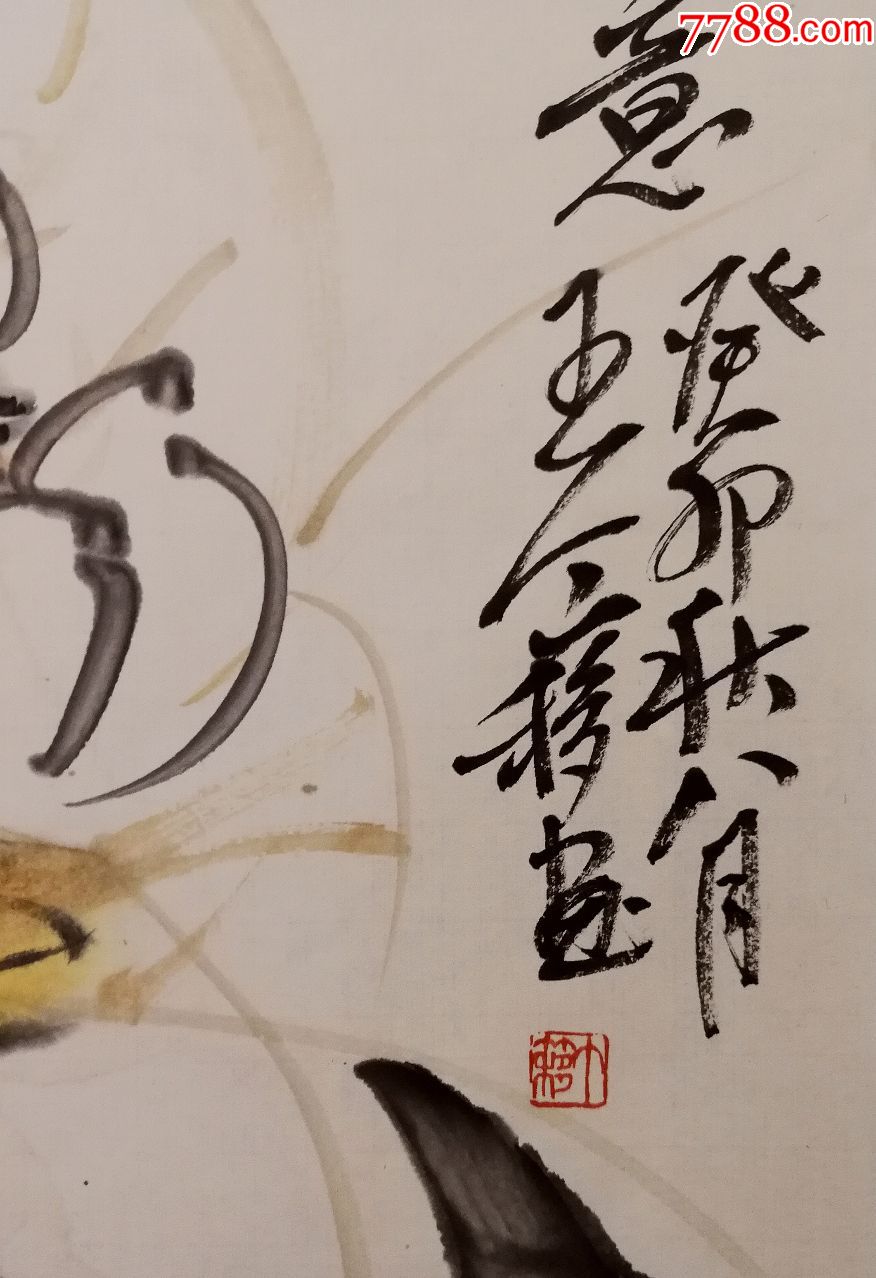 7788.com
意
癸卯秋八月
王个簃画